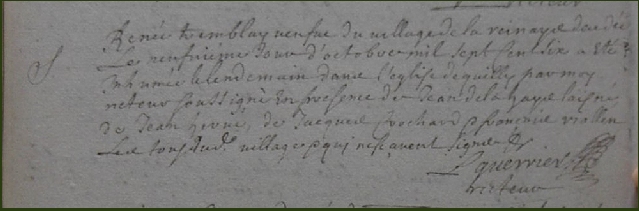 S
Renée tremblay veufve du village de la reinaye decedée
Le neufvième Jour d'octobre mil sept cent six a esté
Inhumée le lendemain dans l'eglise de quilly par moy
recteur soussigné En presence de Jean de la haye laisné
de Jean hervé, de Jacques françoise
tous village qui ne sçavent signer
P guerrier
recteur